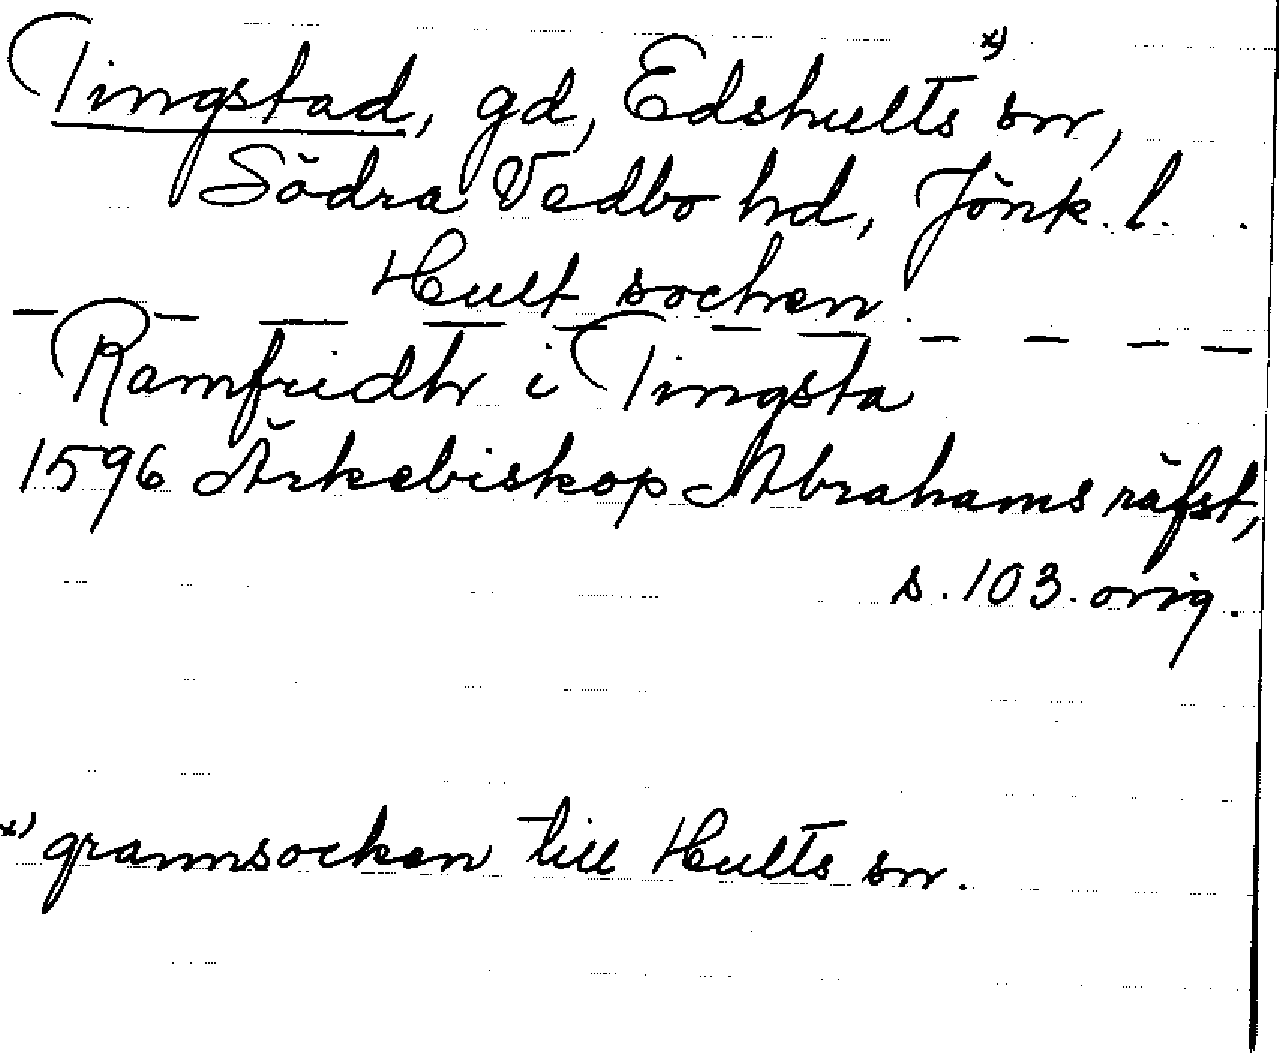 Tingstad, gd, Edshults x) sn,
Södra Vedbo hd, Jönk. l.
Hult socken.
Ramfridh i Tingsta
1596 Ärkebiskop Abrahams räfst,
s. 103. orig.
x) grannsocken till Hults sn.